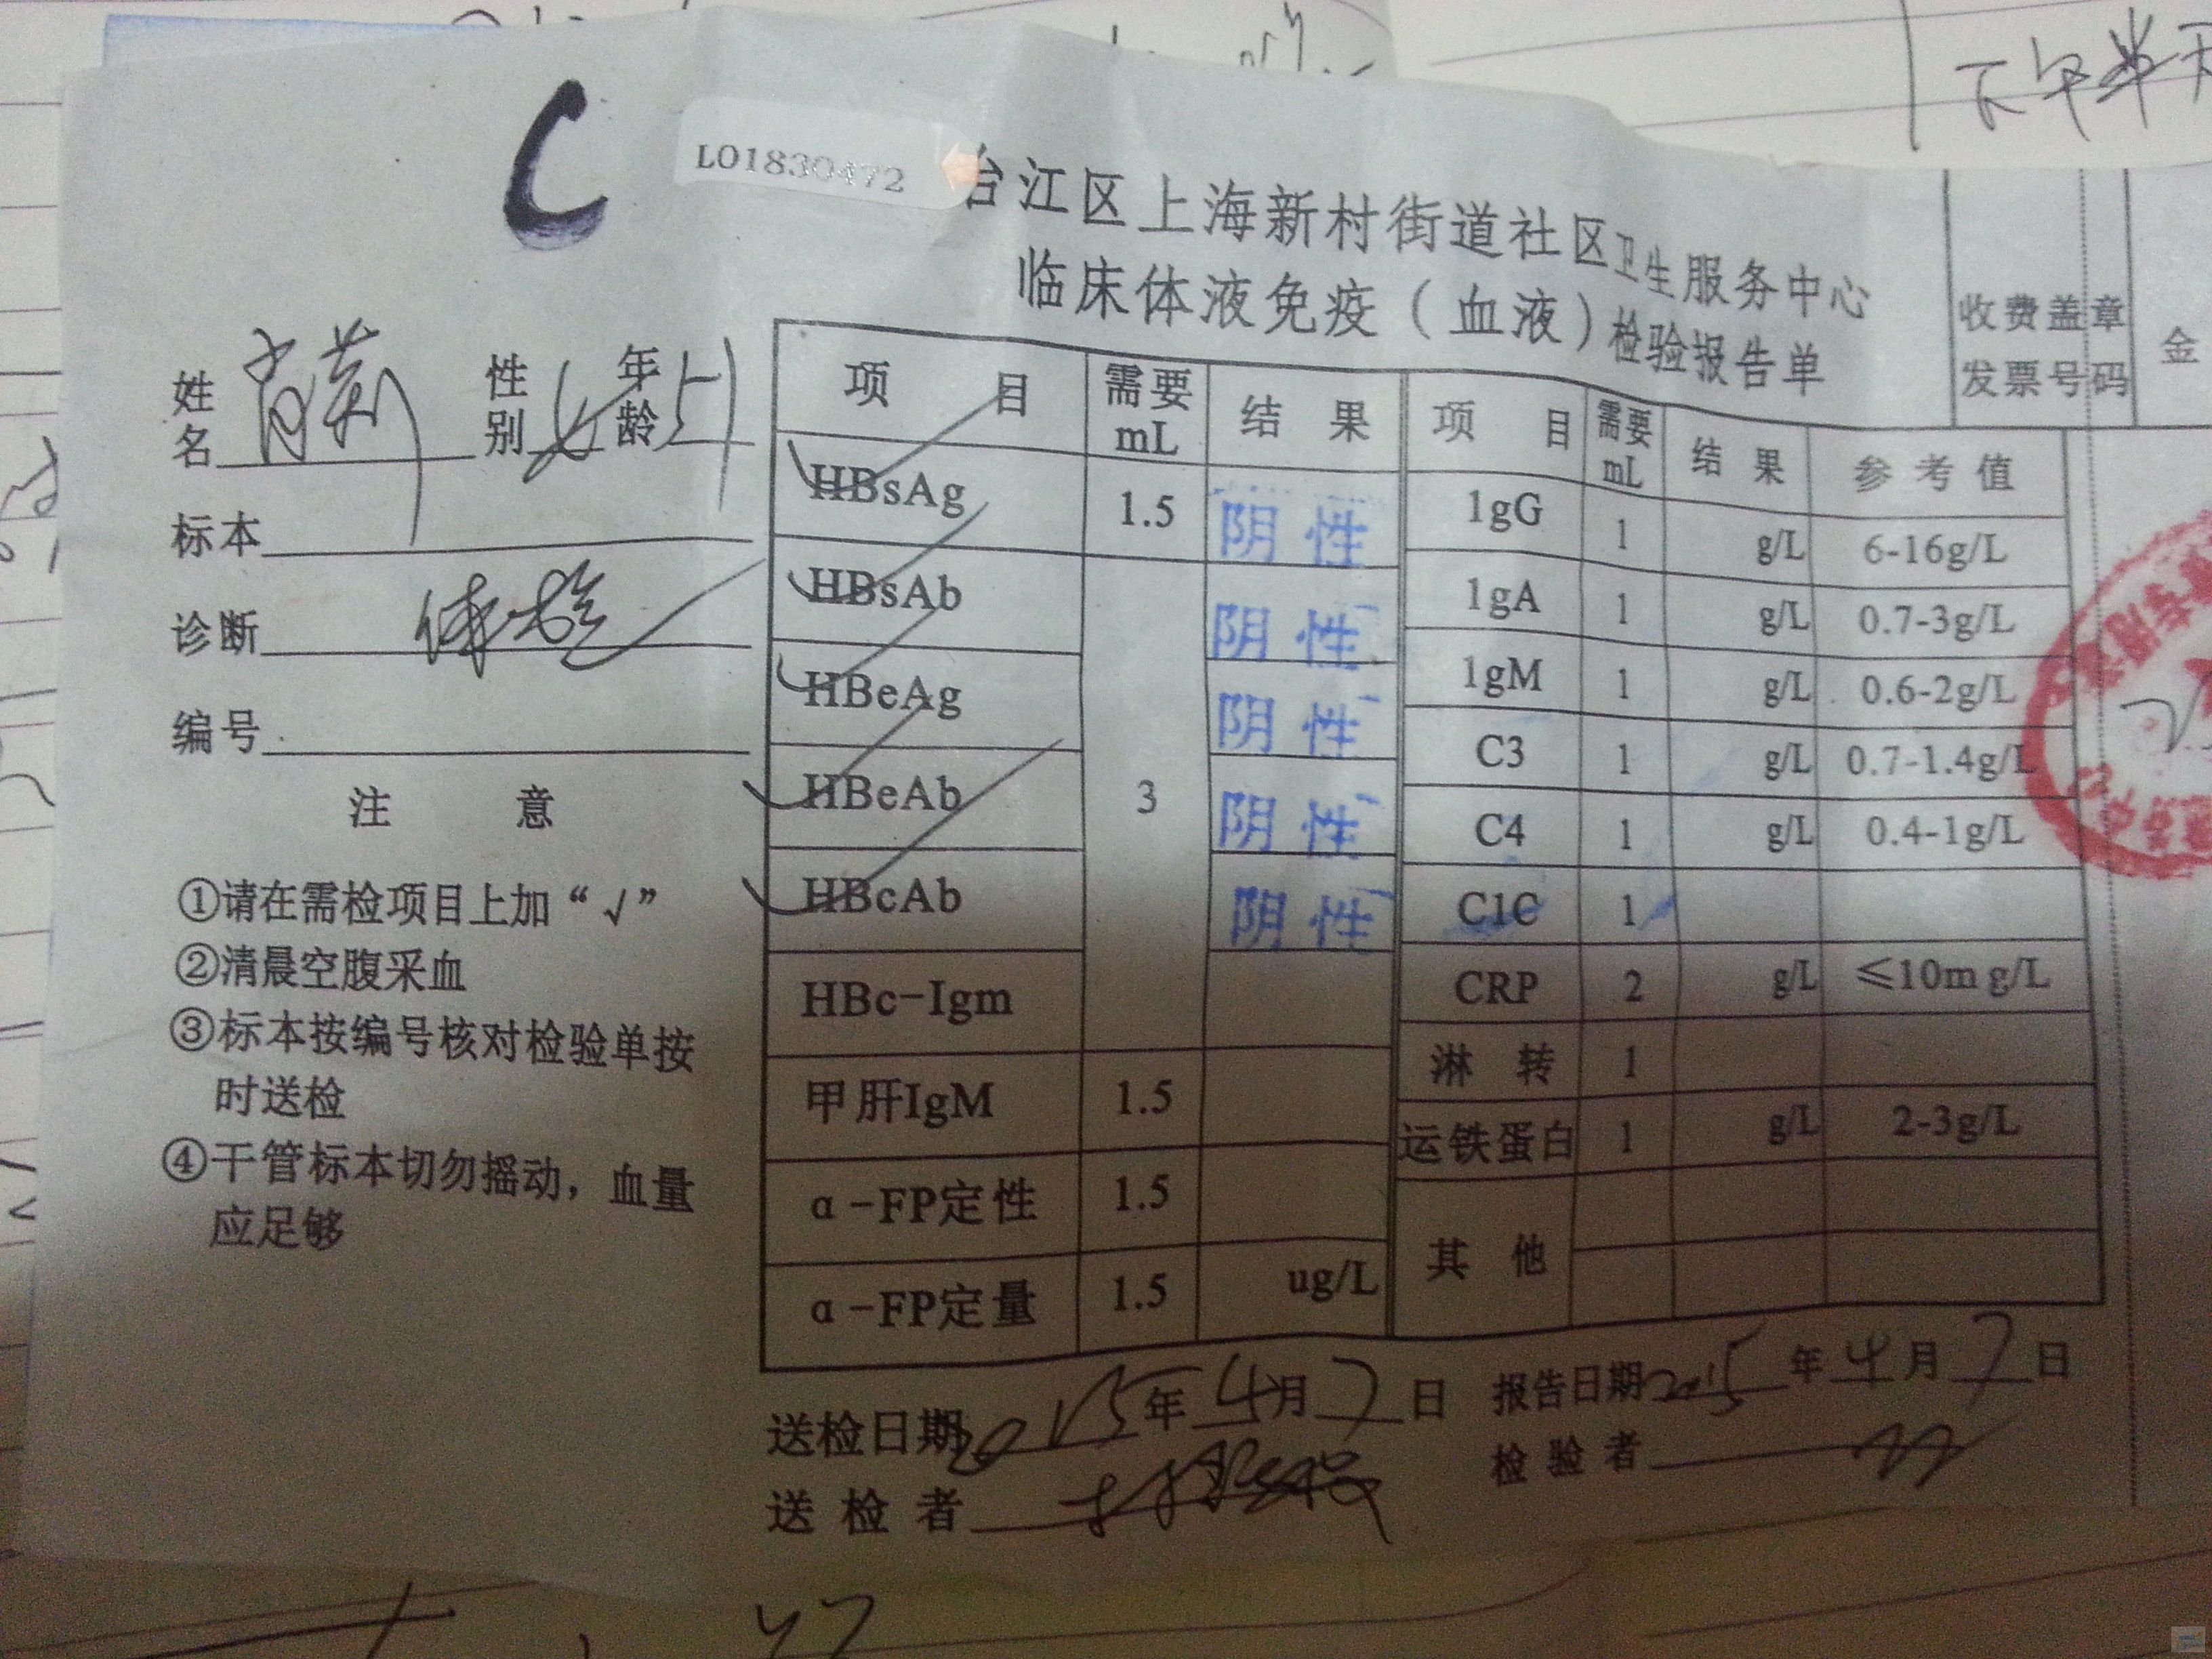 C
L01830472
台江区上海新村街道社区卫生服务中心
临床体液免疫（血液）检验报告单
下午半天
收费盖章
发票号码
金
姓名 性别 女 年龄 51
标本
诊断 体检
编号
注 意
①请在需检项目上加“√”
②清晨空腹采血
③标本按编号核对检验单按
时送检
④干管标本切勿摇动，血量
应足够
项 目 需要mL 结 果
HBsAg 1.5 阴性
HBsAb 阴性
HBeAg 阴性
HBeAb 3 阴性
HBcAb 阴性
HBc-Igm
甲肝IgM 1.5
α-FP定性 1.5
α-FP定量 1.5 ug/L
项 目 需要mL 结 果 参考值
1gG 1 g/L 6-16g/L
1gA 1 g/L 0.7-3g/L
1gM 1 g/L 0.6-2g/L
C3 1 g/L 0.7-1.4g/L
C4 1 g/L 0.4-1g/L
C1C 1
CRP 2 g/L ≤10mg/L
淋 转 1
运铁蛋白 1 g/L 2-3g/L
其 他
送检日期 2015 年 4 月 7 日 报告日期 2015 年 4 月 7 日
送检者 检验者